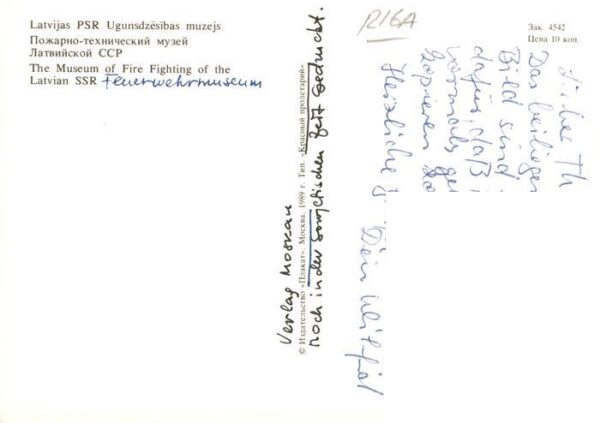 Latvijas PSR Ugunsdzēsības muzejs
Пожарно-технический музей
Латвийской ССР
The Museum of Fire Fighting of the
Latvian SSR Feuerwehrmuseum
Verlag Moskau
noch in der sowjetischen Zeit gedruckt.
© Издательство «Плакат». Москва. 1989 г. Тип. «Красный пролетарий»
R16A
Зак. 4542
Цена 10 коп.
Das beiliegen
Bild sind
dafür, daß
kopieren
Herzliche
Dein